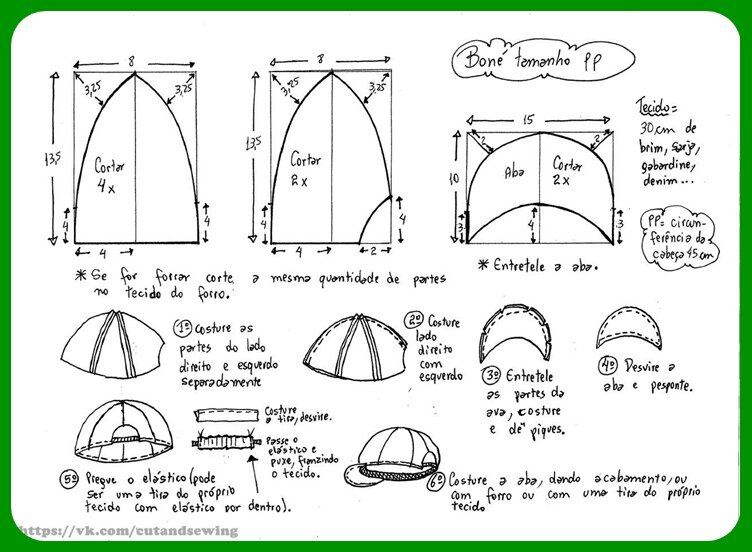 Boné tamanho PP
8
3,25
3,25
13,5
Cortar
4x
4
4
4
8
3,25
3,25
13,5
Cortar
2x
4
4
4
2
15
2
2
10
Aba
Cortar
2x
3
4
3
Tecido=
30cm de
brim, sarja,
gabardine,
denim...
PP= circun-
ferência da
cabeça 45cm
* Se for forrar corte a mesma quantidade de partes
no tecido do forro.
* Entretele a aba.
1º costure as
partes do lado
direito e esquerdo
separadamente
2º Costure
lado
direito
com
esquerdo
3º Entretele
as partes da
ava, costure
e dê piques.
4º Desvire a
aba e pesponte.
Costure
a tira, desvire.
Passe o
elástico e
puxe, franzindo
o tecido.
5º Pregue o elástico (pode
ser uma tira do próprio
tecido com elástico por dentro).
6º Costure a aba, dando acabamento, ou
com forro ou com uma tira do próprio
tecido
https://vk.com/cutandsewing